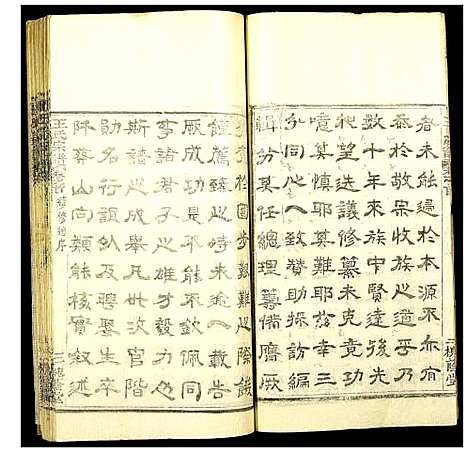 者未能遍於本源不亦有
忝於敬宗收族之道乎乃
數十年來族中賢達後先
相望迭議修纂未克竟功
噫莫慎耶莫難耶茲幸三
公同心一致贊助採訪編
輯分其任總理籌備膺厥
於國步艱難之際饑
饉薦臻之時未逾一載告
厥成功是不能不欽佩同
事諸君子之雄才毅力也
斯譜之成舉凡世次官階
勛名行誼以及聘娶生卒
阡葬山向類能核實敘述
王氏宗譜 卷首 續修譜序
三槐堂
三槐堂